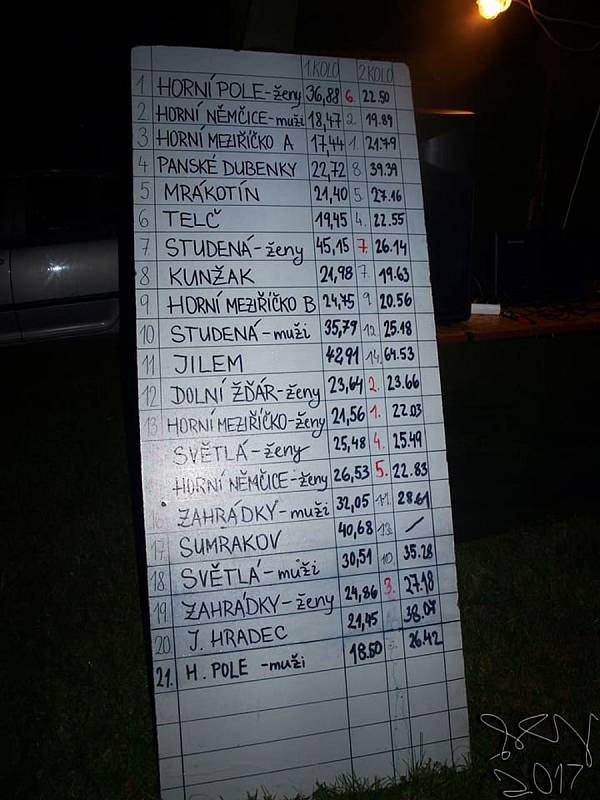 1.KOLO 2.KOLO
1 HORNÍ POLE-ženy 36,88 6. 22.50
2 HORNÍ NĚMČICE-muži 18,47 2. 19.89
3 HORNÍ MEZIŘÍČKO A 17,44 1. 21.79
4 PANSKÉ DUBENKY 22,72 8 39.39
5 MRÁKOTÍN 21,40 5. 27.16
6 TELČ 19,45 4. 22.55
7 STUDENÁ-ženy 45,15 7. 26.14
8 KUNŽAK 21,98 7. 19.63
9 HORNÍ MEZIŘÍČKO B 24,75 9. 20.56
10 STUDENÁ-muži 35,79 12. 25.18
11 JILEM 42,91 14. 64.53
12 DOLNÍ ŽĎÁR-ženy 23,64 2. 23.66
13 HORNÍ MEZIŘÍČKO-ženy 21,56 1. 22.03
SVĚTLÁ-ženy 25,48 4. 25.49
HORNÍ NĚMČICE-ženy 26,53 5. 22.83
16 ZAHRÁDKY-muži 32,05 11. 28.61
17 SUMRAKOV 40,68 13.
18. SVĚTLÁ-muži 30,51 10. 35.28
19. ZAHRÁDKY-ženy 24,86 3. 27.18
20 J. HRADEC 21,45 38.07
21. H. POLE -muži 18.50 26.42
2017